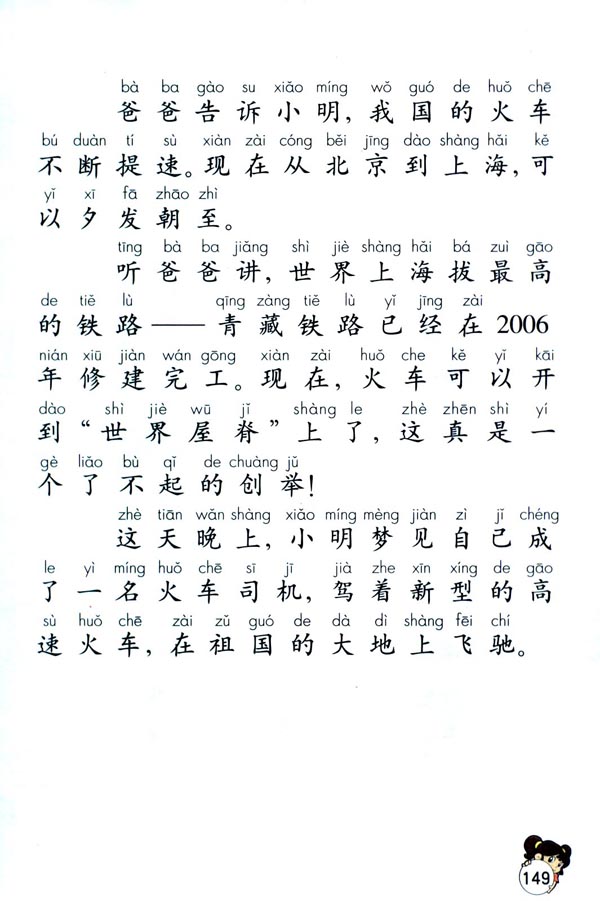 bà ba gào su xiǎo míng wǒ guó de huǒ chē
爸爸告诉小明，我国的火车
bú duàn tí sù xiàn zài cóng běi jīng dào shàng hǎi kě
不断提速。现在从北京到上海，可
yǐ xī fā zhāo zhì
以夕发朝至。
tīng bà ba jiǎng shì jiè shàng hǎi bá zuì gāo
听爸爸讲，世界上海拔最高
de tiě lù qīng zàng tiě lù yǐ jīng zài
的铁路——青藏铁路已经在2006
nián xiū jiàn wán gōng xiàn zài huǒ che kě yǐ kāi
年修建完工。现在，火车可以开
dào shì jiè wū jǐ shàng le zhè zhēn shì yí
到“世界屋脊”上了，这真是一
gè liǎo bù qǐ de chuàng jǔ
个了不起的创举！
zhè tiān wǎn shàng xiǎo míng mèng jiàn zì jǐ chéng
这天晚上，小明梦见自己成
le yì míng huǒ chē sī jī jià zhe xīn xíng de gāo
了一名火车司机，驾着新型的高
sù huǒ chē zài zǔ guó de dà dì shàng fēi chí
速火车，在祖国的大地上飞驰。
149